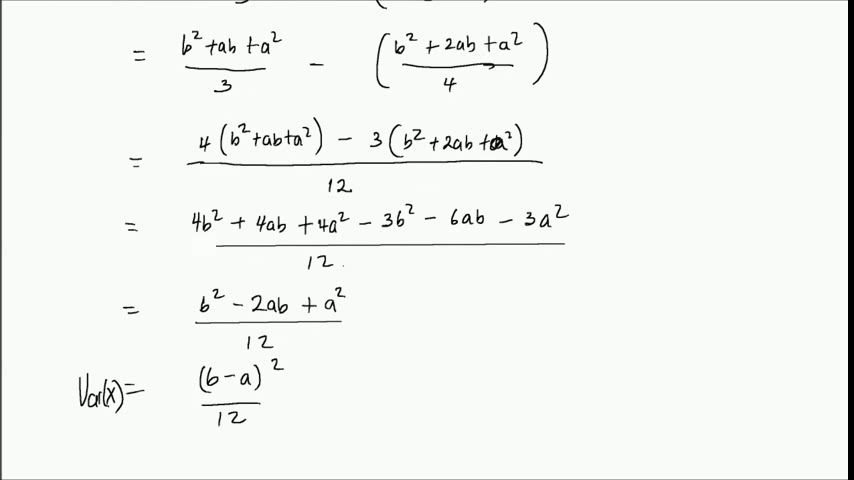 = (b² + ab + a²)/3 - ((b² + 2ab + a²)/4)
= (4(b² + ab + a²) - 3(b² + 2ab + a²))/12
= (4b² + 4ab + 4a² - 3b² - 6ab - 3a²)/12
= (b² - 2ab + a²)/12
Var(x) = (b - a)²/12